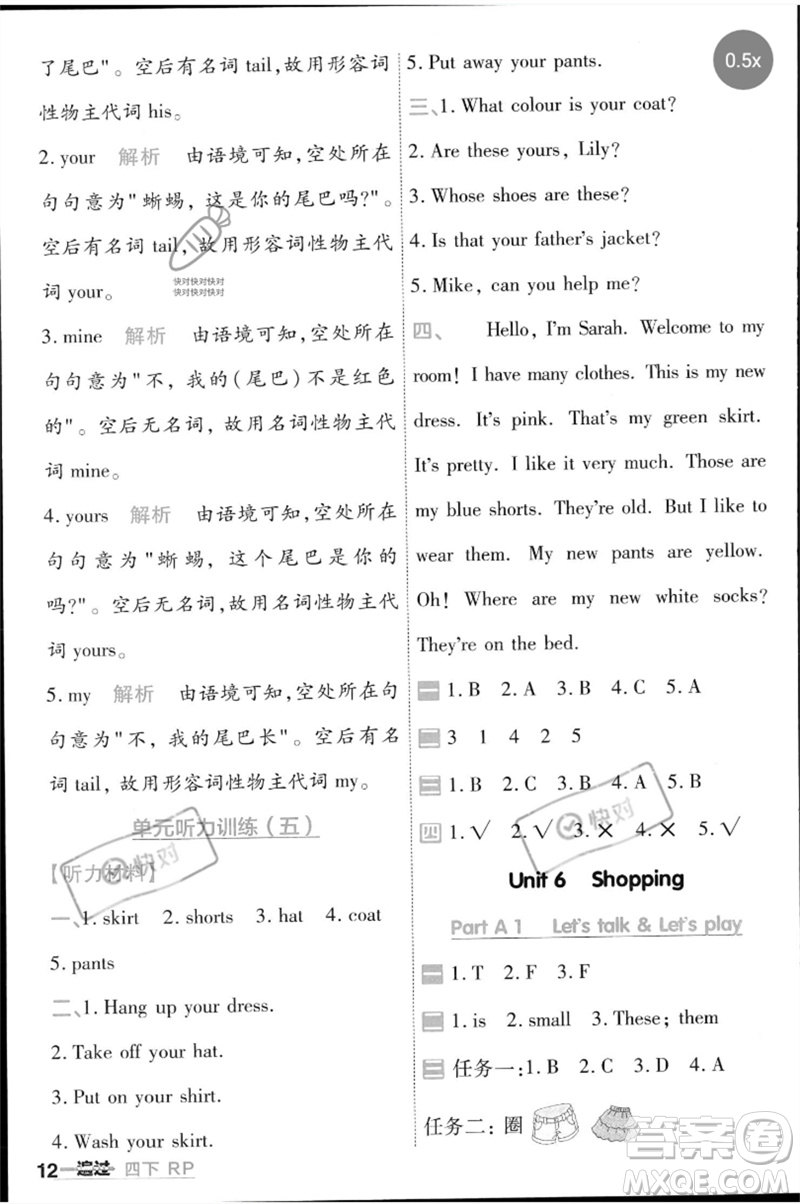 了尾巴"。空后有名词 tail,故用形容词
性物主代词 his。
2. your 解析 由语境可知,空处所在
句句意为"蜥蜴，这是你的尾巴吗?"。
空后有名词 tail,故用形容词性物主代
词 your。
快对快对快对
快对快对快对
3. mine 解析 由语境可知,空处所在
句句意为"不，我的(尾巴)不是红色
的"。空后无名词,故用名词性物主代
词 mine。
4. yours 解析 由语境可知,空处所在
句句意为"蜥蜴，这个尾巴是你的
吗?"。空后无名词,故用名词性物主代
词 yours。
5. my 解析 由语境可知,空处所在句
句意为"不，我的尾巴长"。空后有名
词 tail,故用形容词性物主代词 my。
单元听力训练(五)
【听力材料】
快对
一、1. skirt 2. shorts 3. hat 4. coat
5. pants
二、1. Hang up your dress.
2. Take off your hat.
3. Put on your shirt.
4. Wash your skirt.
12 一遍过 四下 RP
0.5x
5. Put away your pants.
三、1. What colour is your coat?
2. Are these yours, Lily?
3. Whose shoes are these?
4. Is that your father's jacket?
5. Mike, can you help me?
四、 Hello, I'm Sarah. Welcome to my
room! I have many clothes. This is my new
dress. It's pink. That's my green skirt.
It's pretty. I like it very much. Those are
my blue shorts. They're old. But I like to
wear them. My new pants are yellow.
Oh! Where are my new white socks?
They're on the bed.
一 1. B 2. A 3. B 4. C 5. A
二 3 1 4 2 5
三 1. B 2. C 3. B 4. A 5. B
四 1. √ 2. √ 3. × 4. × 5. √
快对
Unit 6 Shopping
Part A 1 Let's talk & Let's play
一 1. T 2. F 3. F
二 1. is 2. small 3. These; them
三 任务一:1. B 2. C 3. D 4. A
任务二:圈
答案圈
MXQE.COM